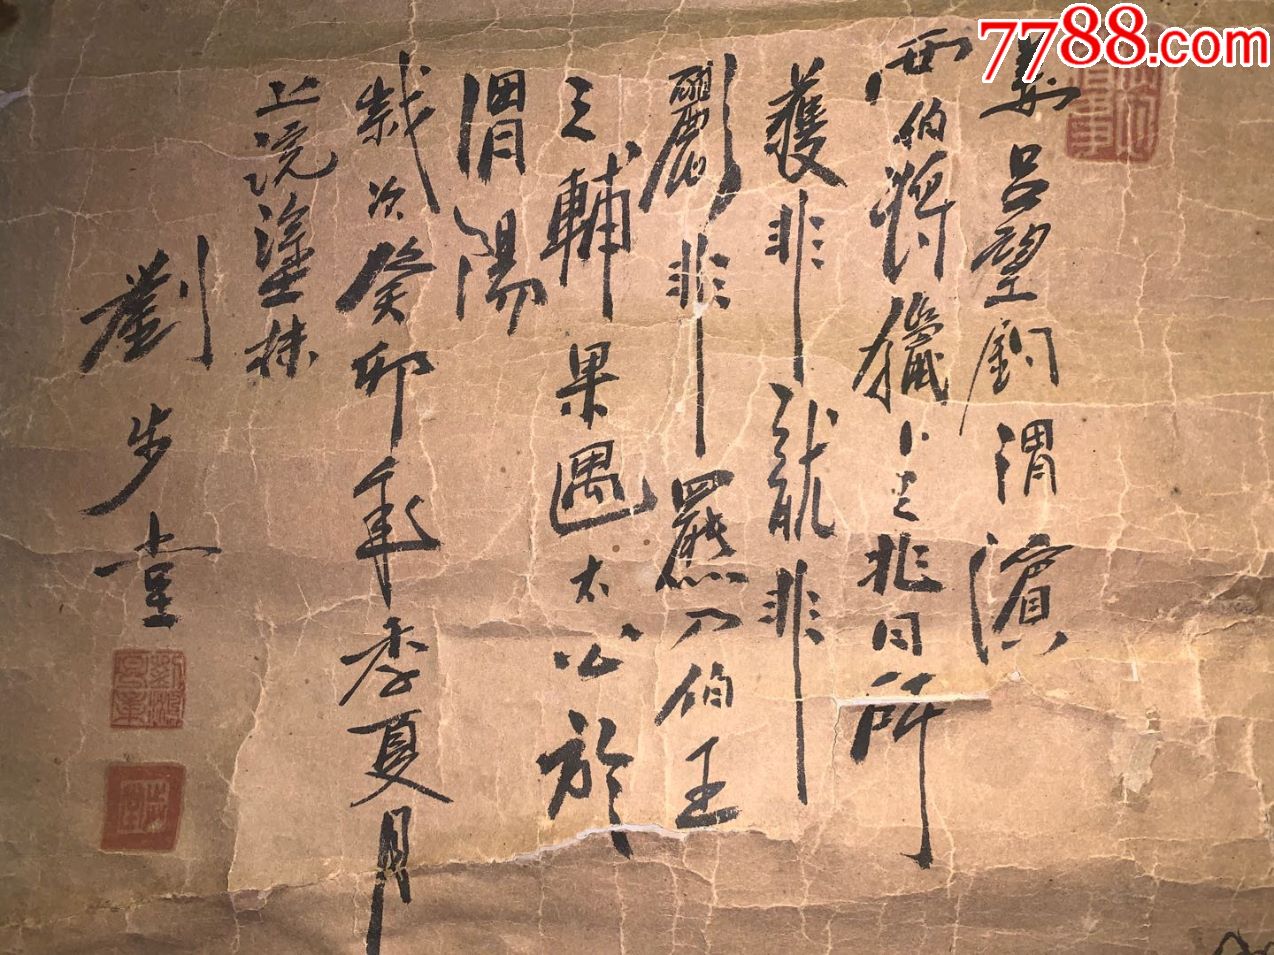 7788.com
姜呂望釣渭濱
西伯將獵卜之兆曰所
獲非龍非
彲非羆乃伯王
之輔果遇太公於
渭陽
歲次癸卯年季夏月
上浣塗抹
劉步堂